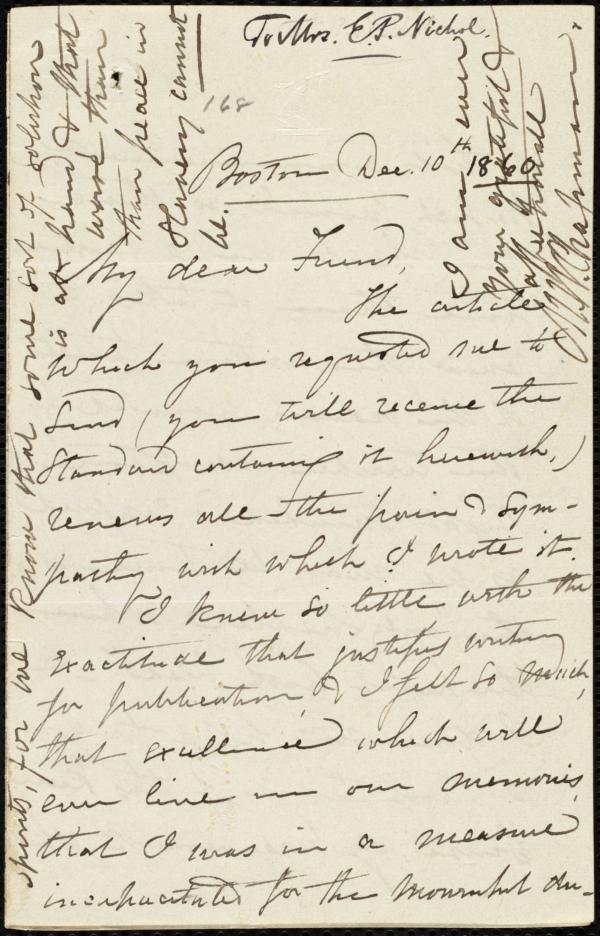 To Mrs. E. P. Nichol.
168
Boston Dec. 10th 1860.
My dear Friend,
The article
which you requested me to
send, (you will receive the
Standard containing it herewith,)
renews all the pain & sym-
pathy with which I wrote it.
I knew so little with the
exactitude that justifies writing
for publication, & I felt so much,
that excellence which will
ever live in our memories,
that I was in a measure
incapacitated for the mournful du-
spirits, for we know that some sort of solution
is at hand & that
worse than
than peace in
Slavery cannot
be.
I am ever
your grateful &
affectionate
M. W. Chapman.